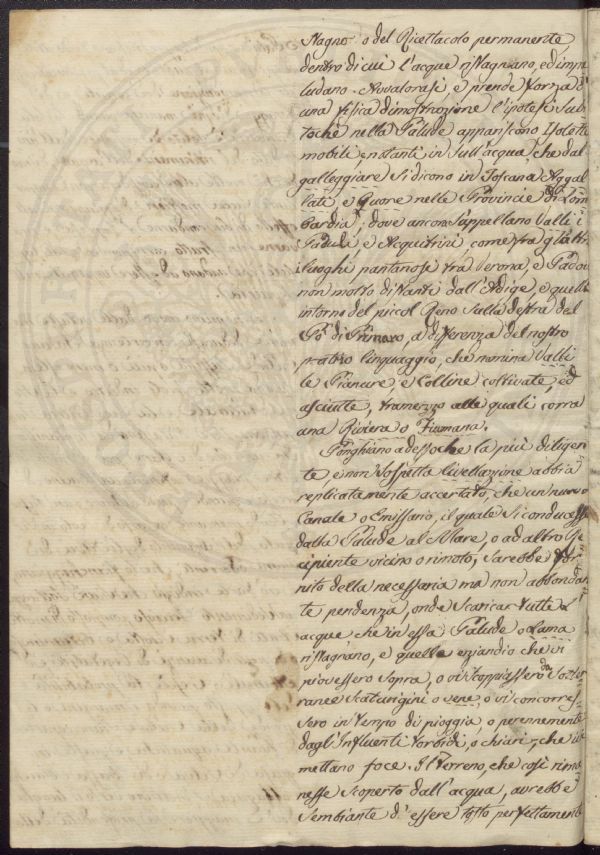 Stagno o del Ricettacolo permanente,
dentro di cui l'acque ristagniano, ed impa
ludano. Avvalorasi, e prende forza d'
una fisica dimostrazione l'ipotesi sub
toche nella Palude appariscono Isolette
mobili, e natanti in sull'acqua, che dal
galleggiare si dicono in Toscana Aggal
lati, e Quore nelle Provincie di Lom
bardia, dove ancora s'appellano Valli i
Paduli, e Acquitrini, come fra gli altri
luoghi pantanosi tra Verona, e Padova
non molto distanti dall'Adige, e quelle
intorno del piccol Reno sulla destra del
Pò di Primaro, a differenza del nostro
patrio linguaggio, che nomina Valli
le Pianure e Colline coltivate, ed
asciutte, tramezzo alle quali corra
una Riviera o Fiumana.
Ponghiano adesso che la più diligen
te e non sospetta livellazione abbia
replicatamente accertato, che un nuovo
Canale o Emissario, il quale si conducesse
dalla Palude al Mare, o ad altro Re
cipiente vicino o rimoto, sarebbe for
nito della necessaria ma non abbondan
te pendenza, onde scaricar tutte l'
acque, che in essa Palude o Lama
ristagnano, e quelle eziandio che vi
piovessero sopra, o vi scoppiassero da sotter
ranee scaturigini o vene, o vi concorres-
sero in tempo di pioggia, o perennemente
dagl'Influenti torbidi, o chiari, che vi
mettano foce. Il Terreno, che così rima
nesse scoperto dall'acqua, avrebbe
sembiante d'essere tosto perfettamente